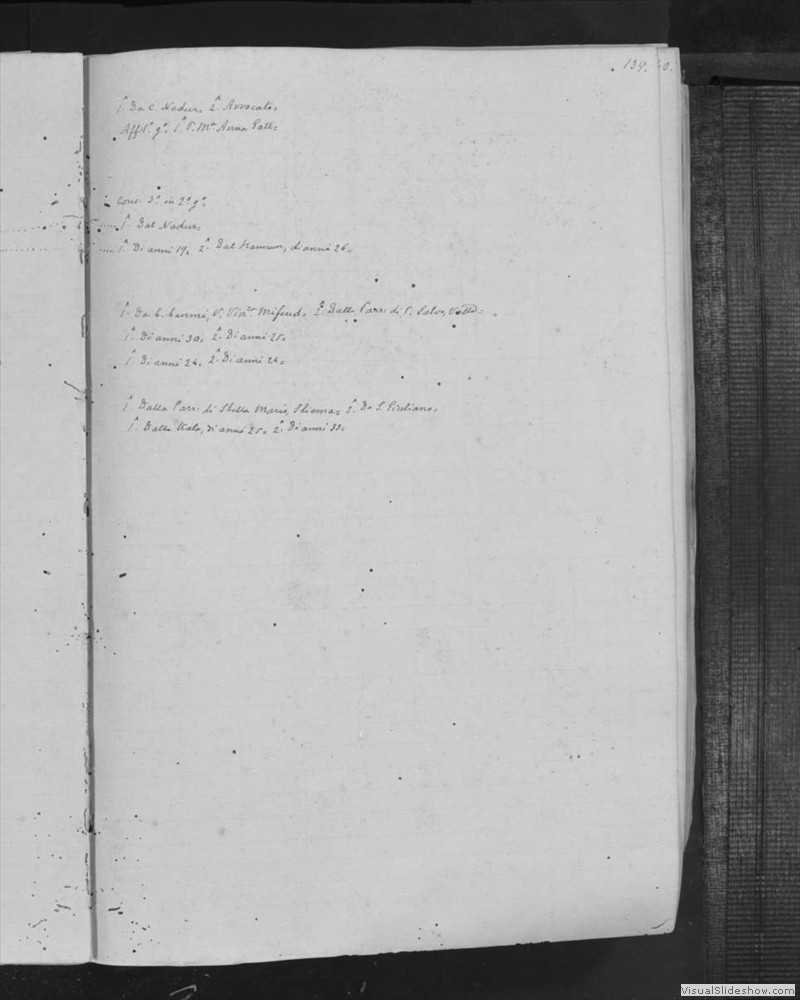 139. 40.
1ª Da C. Nadur. 2ª. Avvocato.
Aff. 1º gº. 1ª
Cons. 3º in 2º gº.
1ª Dal Nadur.
1ª Di anni 19. 2ª Dal Hamrun, di anni 26.
1ª. Da C. Curmi, V. Vinc. Mifsud. 2ª. Dalla Parr. di P. Salvo, Valla.
1ª Di anni 30. 2ª. Di anni 25.
1ª. Di anni 24. 2ª. Di anni 24.
1ª. Dalla Parr. di Stella Maris, Sliema. 2ª. Da S. Giuliano.
1ª. Dalla Kala, di anni 25. 2ª. Di anni 33.
VisualSlideshow.com